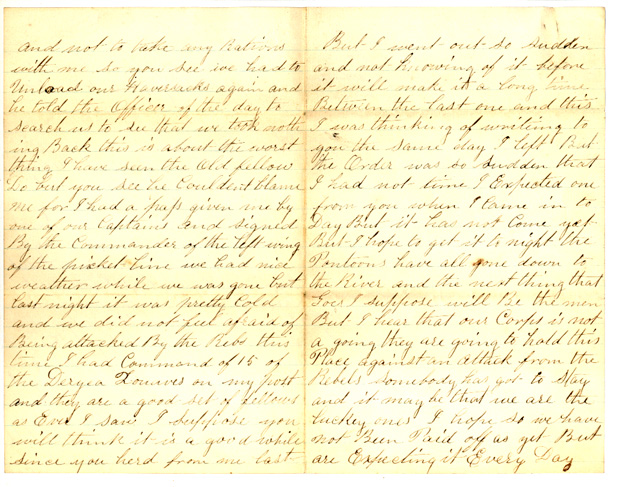 and not to take any Rations
with me so you see we had to
Unload our Haversacks again and
he told the Officer of the day to
search us to see that we took noth
ing Back this is about the worst
thing I have seen the Old fellow
do but you see he Couldent blame
me for I had a pass given me by
one of our Captains and signed
By the Commander of the left wing
of the picket line we had nice
weather while we was gone but
last night it was pretty Cold
and we did not feel afraid of
Being attacked By the Rebs this
time I had Command of 15 of
the Deryea Zouives on my post
and they are a good set of fellows
as Ever I saw I suppose you
will think it is a good while
since you herd from me last
But I went out so sudden
and not knowing of it before
it will make it a long time
Between the last one and this
I was thinking of writing to
you the same day I left But
the Order was so sudden that
I had not time I Expected one
from you when I Came in to
Day But it has not Come yet
But I hope to get it to night the
Pontoons have all gone down to
the River and the next thing that
Goes I suppose will Be the men
But I hear that our Corps is not
a going they are going to hold this
Place against an Attack from the
Rebels somebody has got to stay
and it may be that we are the
luckey ones I hope so we have
not Been Paid off as yet But
are Expecting it Every Day